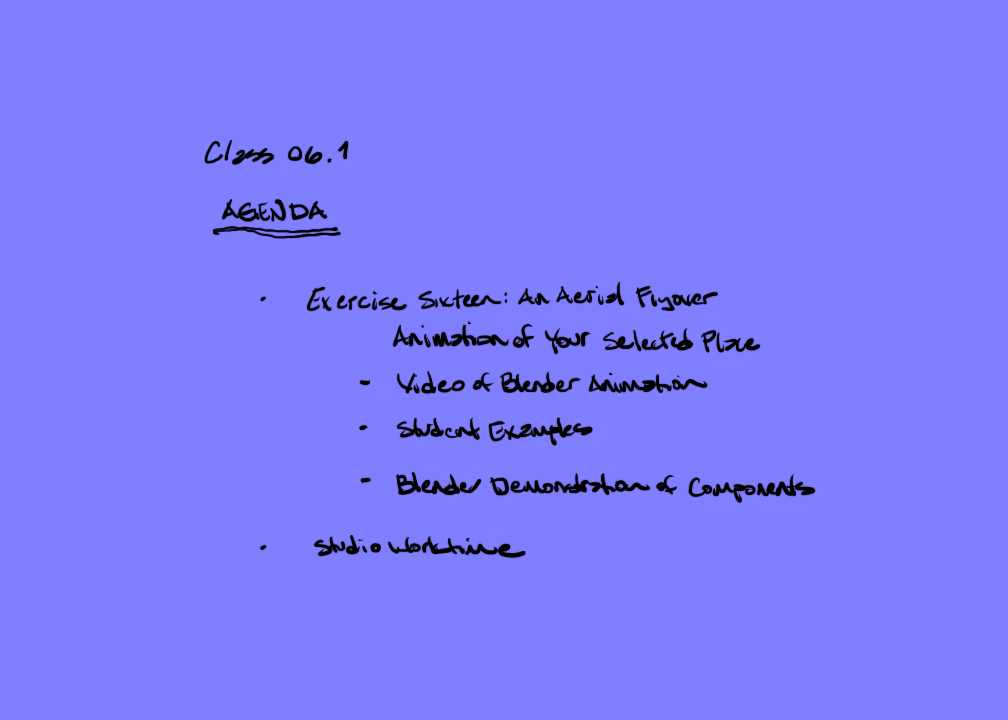 Class 06.1
AGENDA
· Exercise Sixteen: An Aerial Flyover
Animation of Your Selected Place
- Video of Blender Animation
- Student Examples
- Blender Demonstration of Components
· Studio Worktime